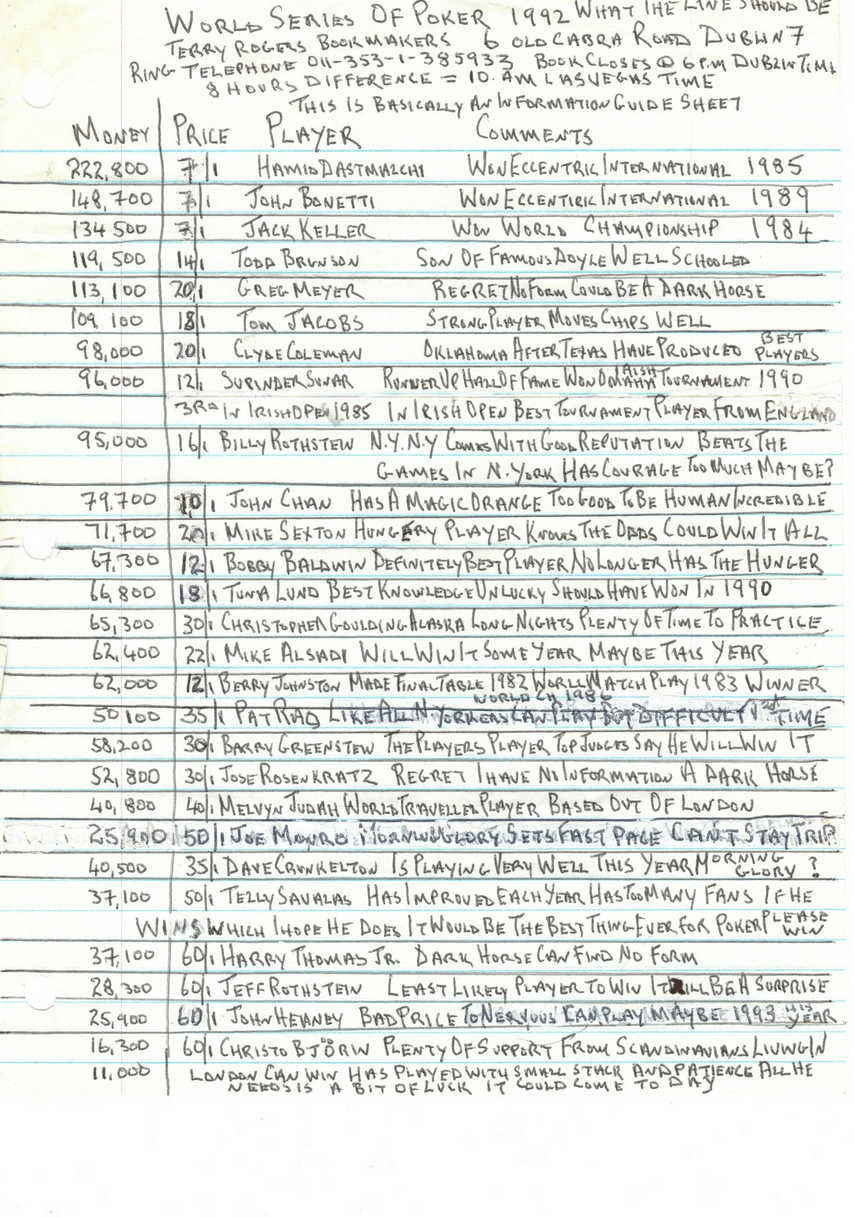 WORLD SERIES OF POKER 1992 WHAT THE LINE SHOULD BE
TERRY ROGERS BOOKMAKERS 6 OLD CABRA ROAD DUBLIN 7
RING TELEPHONE 011-353-1-385933 BOOK CLOSES @ 6 P.M DUBLIN TIME
8 HOURS DIFFERENCE = 10. AM LAS VEGAS TIME
THIS IS BASICALLY AN INFORMATION GUIDE SHEET
MONEY PRICE PLAYER COMMENTS
222,800 7/1 HAMID DASTMALCHI WON ECCENTRIC INTERNATIONAL 1985
148,700 7/1 JOHN BONETTI WON ECCENTIRIC INTERNATIONAL 1989
134 500 7/1 JACK KELLER WON WORLD CHAMPIONSHIP 1984
119,500 14/1 TODD BRUNSON SON OF FAMOUS DOYLE WELL SCHOOLED
113,100 20/1 GREG MEYER REGRET NO FORM COULD BE A DARK HORSE
109 100 18/1 TOM JACOBS STRONG PLAYER MOVES CHIPS WELL
98,000 20/1 CLYDE COLEMAN OKLAHOMA AFTER TEXAS HAVE PRODUCED BEST PLAYERS
96,000 12/1 SURINDER SUNAR RUNNER UP HALL OF FAME WON OMAHA IRISH TOURNAMENT 1990
3RD IN IRISH OPEN 1985 IN IRISH OPEN BEST TOURNAMENT PLAYER FROM ENGLAND
95,000 16/1 BILLY ROTHSTEIN N.Y.N.Y COMES WITH GOOD REPUTATION BEATS THE
GAMES IN N.YORK HAS COURAGE TOO MUCH MAY BE?
79,700 10/1 JOHN CHAN HAS A MAGIC ORANGE TOO GOOD TO BE HUMAN INCREDIBLE
71,700 20/1 MIKE SEXTON HUNGERY PLAYER KNOWS THE ODDS COULD WIN IT ALL
67,300 12/1 BOBBY BALDWIN DEFINITELY BEST PLAYER NO LONGER HAS THE HUNGER
66,800 18/1 TUNA LUND BEST KNOWLEDGE UNLUCKY SHOULD HAVE WON IN 1990
65,300 30/1 CHRISTOPHER GOULDING ALASKA LONG NIGHTS PLENTY OF TIME TO PRACTICE
62,400 22/1 MIKE ALSADI WILL WIN IT SOME YEAR MAYBE THIS YEAR
62,000 12/1 BERRY JOHNSTON MADE FINAL TABLE 1982 WORLD MATCH PLAY 1983 WINNER
WORLD CH 1986
50 100 35/1 PAT RAO LIKE ALL N YORKERS CAN PLAY BUT DIFFICULTY 1ST TIME
58,200 30/1 BARRY GREENSTEW THE PLAYERS PLAYER TOP JUDGES SAY HE WILL WIN IT
52,800 30/1 JOSE ROSENKRATZ REGRET I HAVE NO INFORMATION A DARK HORSE
40,800 40/1 MELVYN JUDAH WORLD TRAVELLER PLAYER BASED OUT OF LONDON
25,900 50/1 JOE MONRO MORNING GLORY SETS FAST PACE CAN'T STAY TRIP
40,500 35/1 DAVE CRUNKELTON IS PLAYING VERY WELL THIS YEAR MORNING GLORY ?
37,100 50/1 TELLY SAVALAS HAS IMPROVED EACH YEAR HAS TOO MANY FANS IF HE
WINS WHICH I HOPE HE DOES IT WOULD BE THE BEST THING EVER FOR POKER PLEASE WIN
37,100 60/1 HARRY THOMAS JR. DARK HORSE CAN FIND NO FORM
28,300 60/1 JEFF ROTHSTEIN LEAST LIKELY PLAYER TO WIN IT WILL BE A SURPRISE
25,900 60/1 JOHN HEANEY BAD PRICE TO NERVOUS CAN PLAY MAYBE 1993 HIS YEAR
16,300 60/1 CHRISTO BJÖRIN PLENTY OF SUPPORT FROM SCANDINAVIANS LIVING IN
11,000 LONDON CAN WIN HAS PLAYED WITH SMALL STACK AND PATIENCE ALL HE
NEEDS IS A BIT OF LUCK IT COULD COME TO DAY